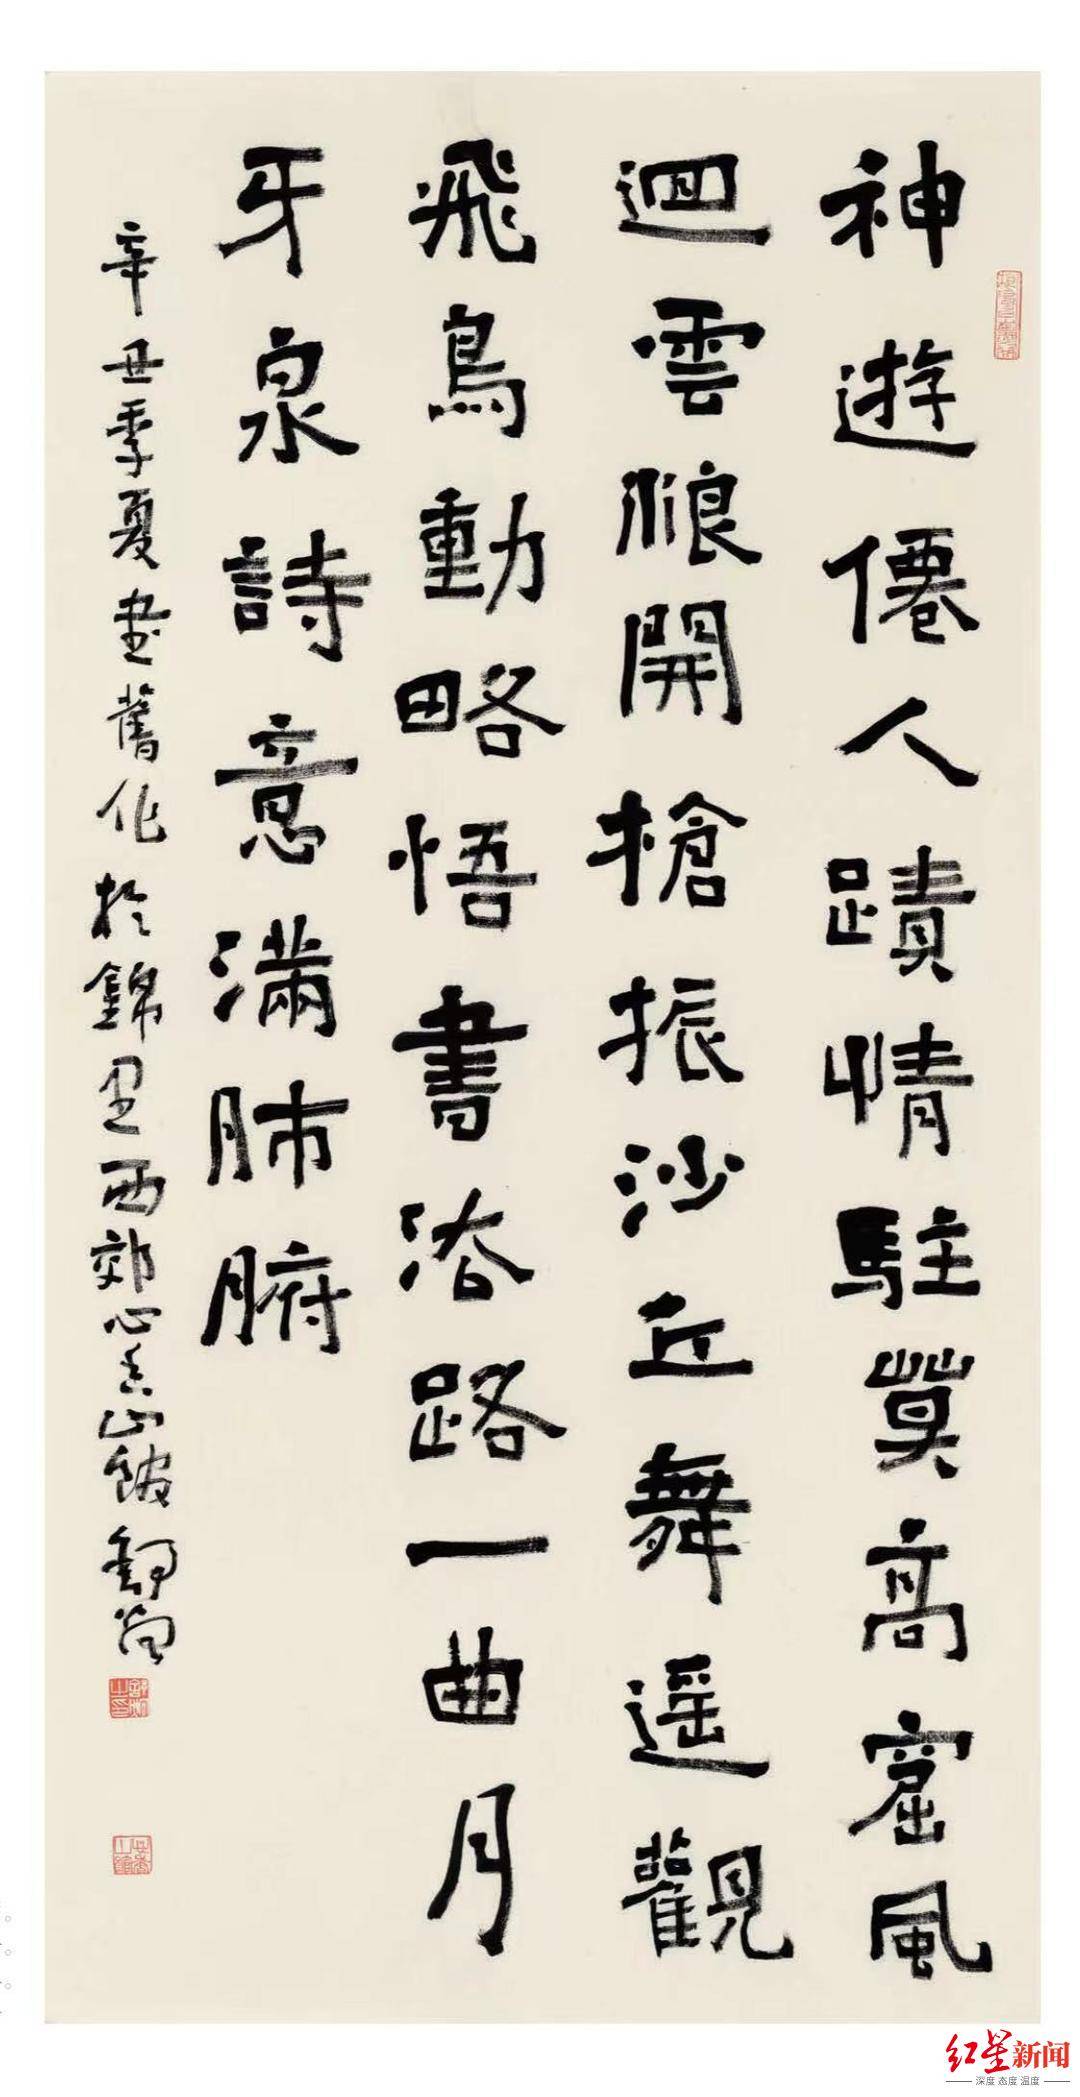 神遊僊人蹟情駐莫高窟風
迴雲浪開搶振沙丘舞遥觀
飛鳥動略悟書洛路一曲月
牙泉詩意滿肺腑
辛丑季夏書舊作於錦里西郊心香山館舒炯
红星新闻
深度 态度 温度